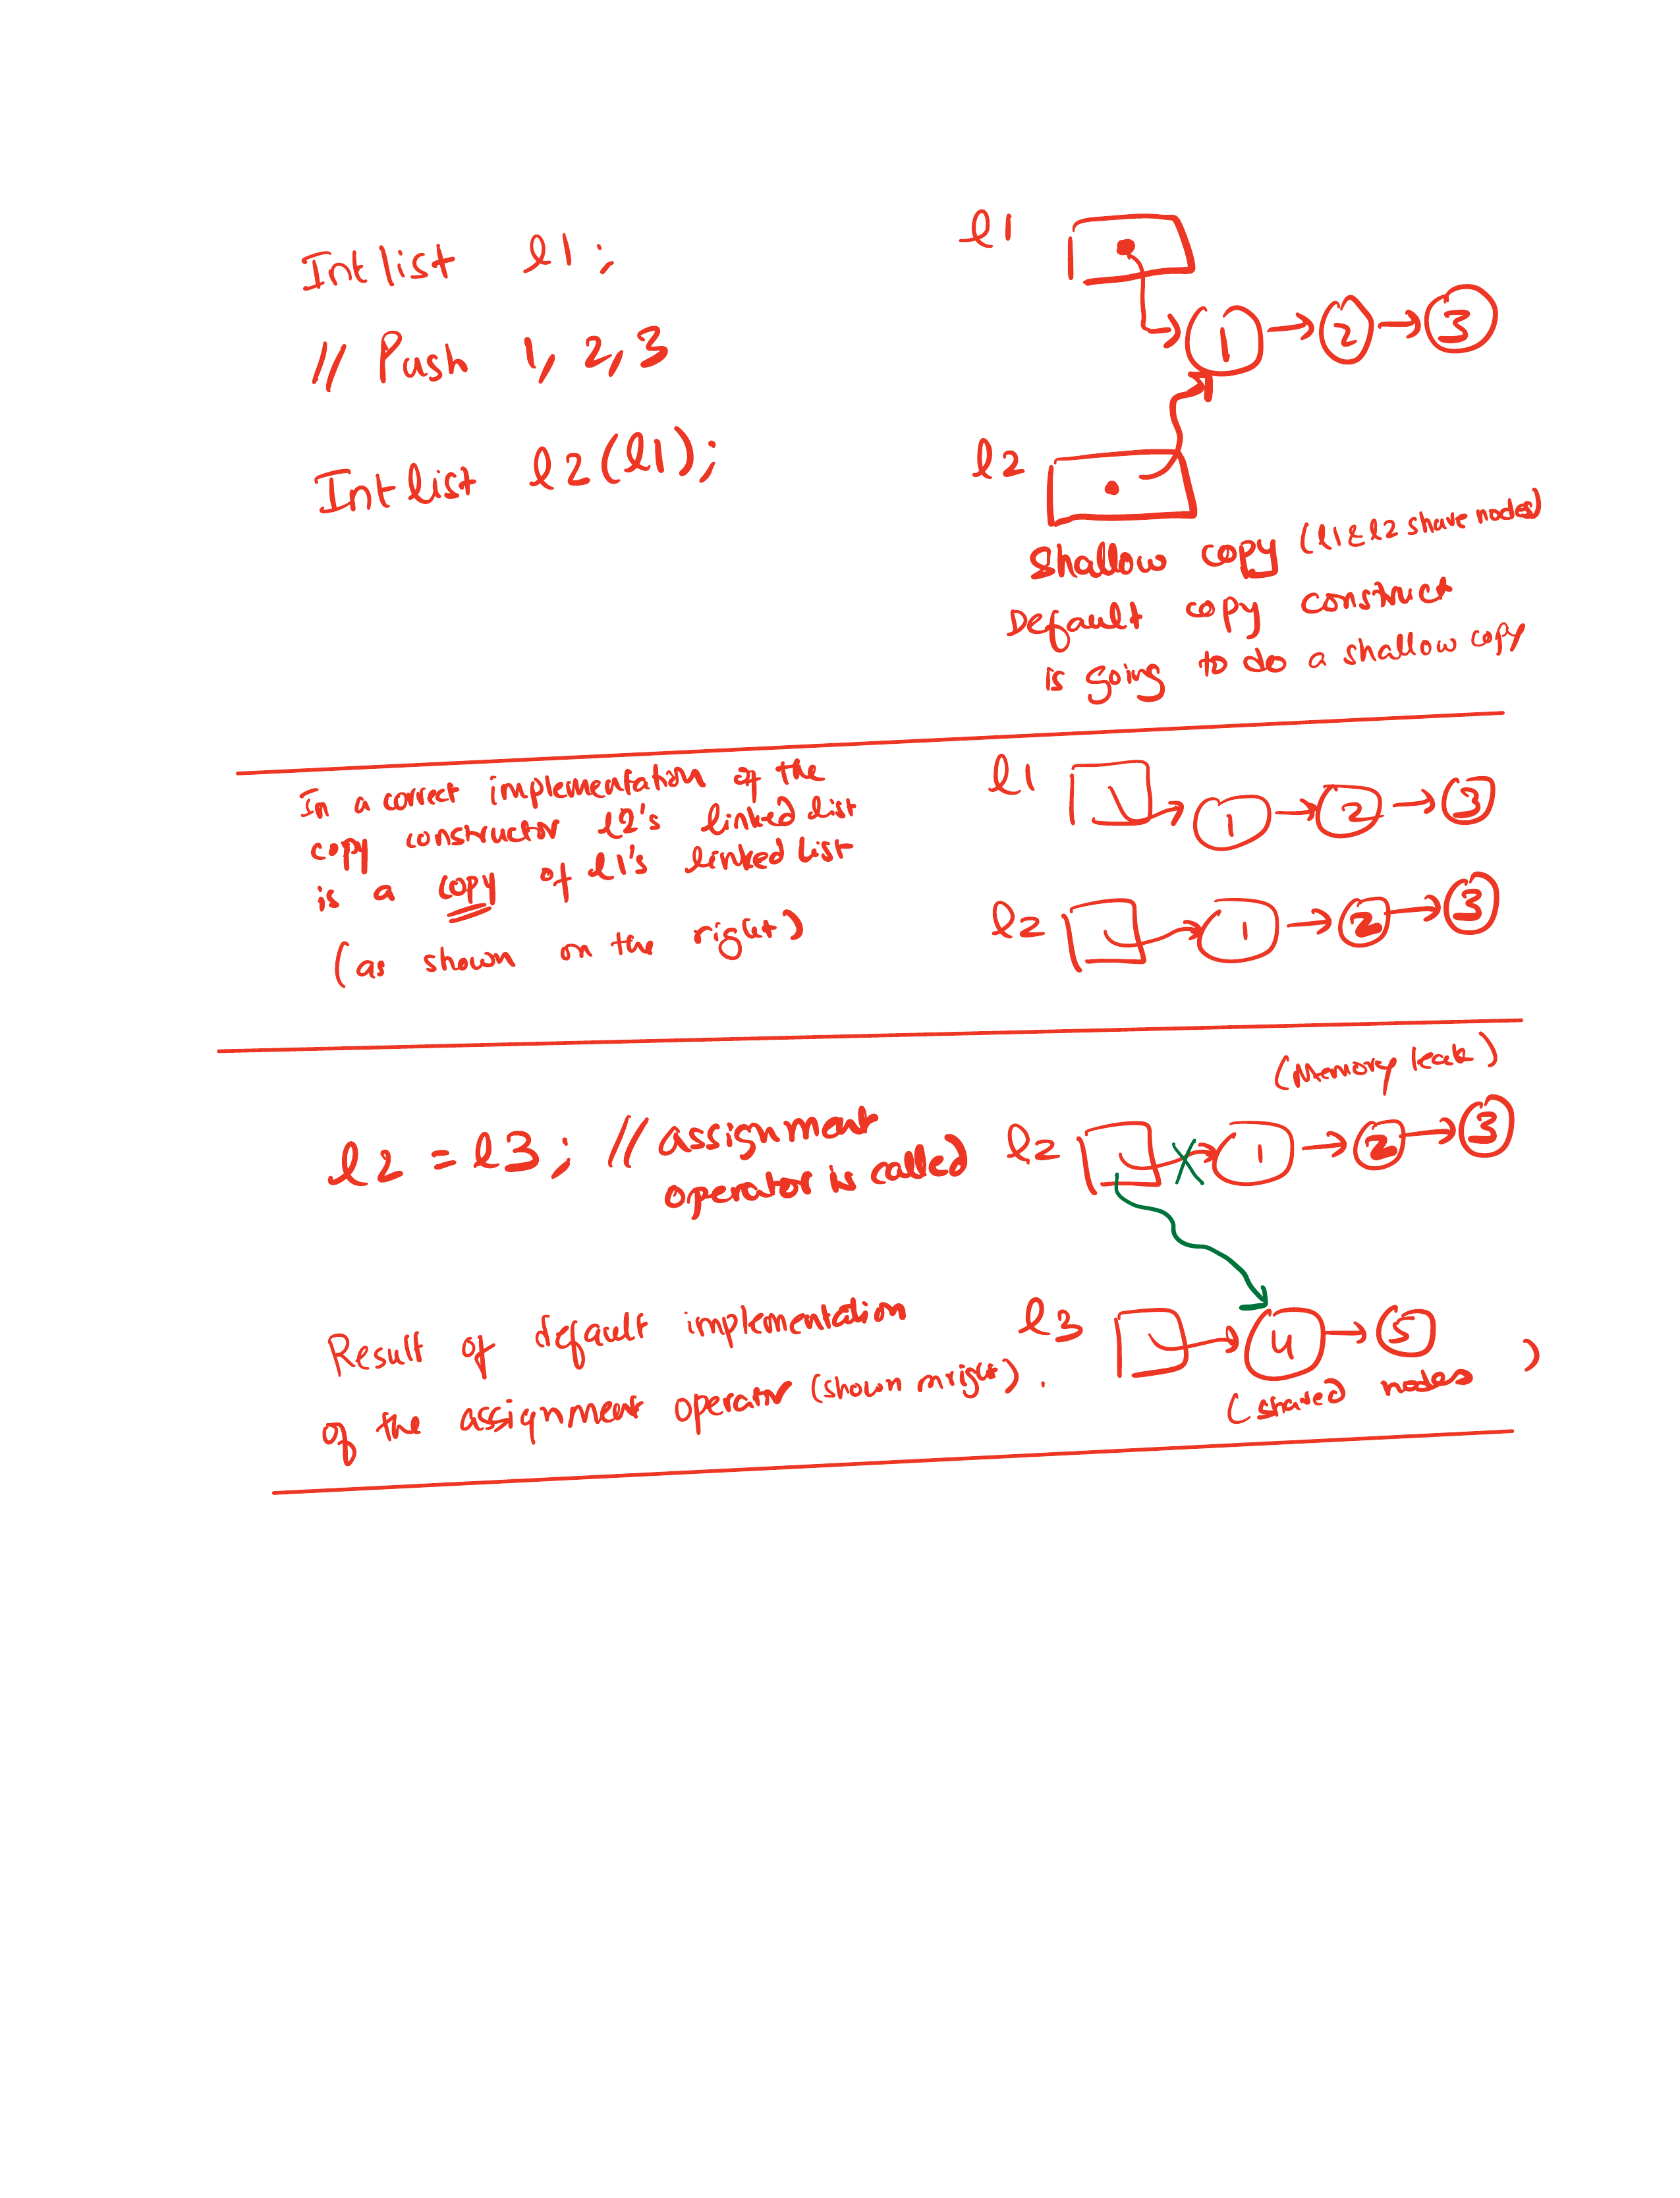 Intlist l1;
// Push 1, 2, 3
Intlist l2(l1);
l1
1 → 2 → 3
l2
Shallow copy (l1 & l2 share nodes)
Default copy construct
is going to do a shallow copy
In a correct implementation of the
copy constructor l2's linked list
is a copy of l1's linked list
(as shown on the right)
l1
1 → 2 → 3
l2
1 → 2 → 3
l2 = l3; // assignment
operator is called
(Memory leak)
l2
1 → 2 → 3
Result of default implementation
of the assignment operator (shown on right).
l3
4 → 5
(shared nodes)